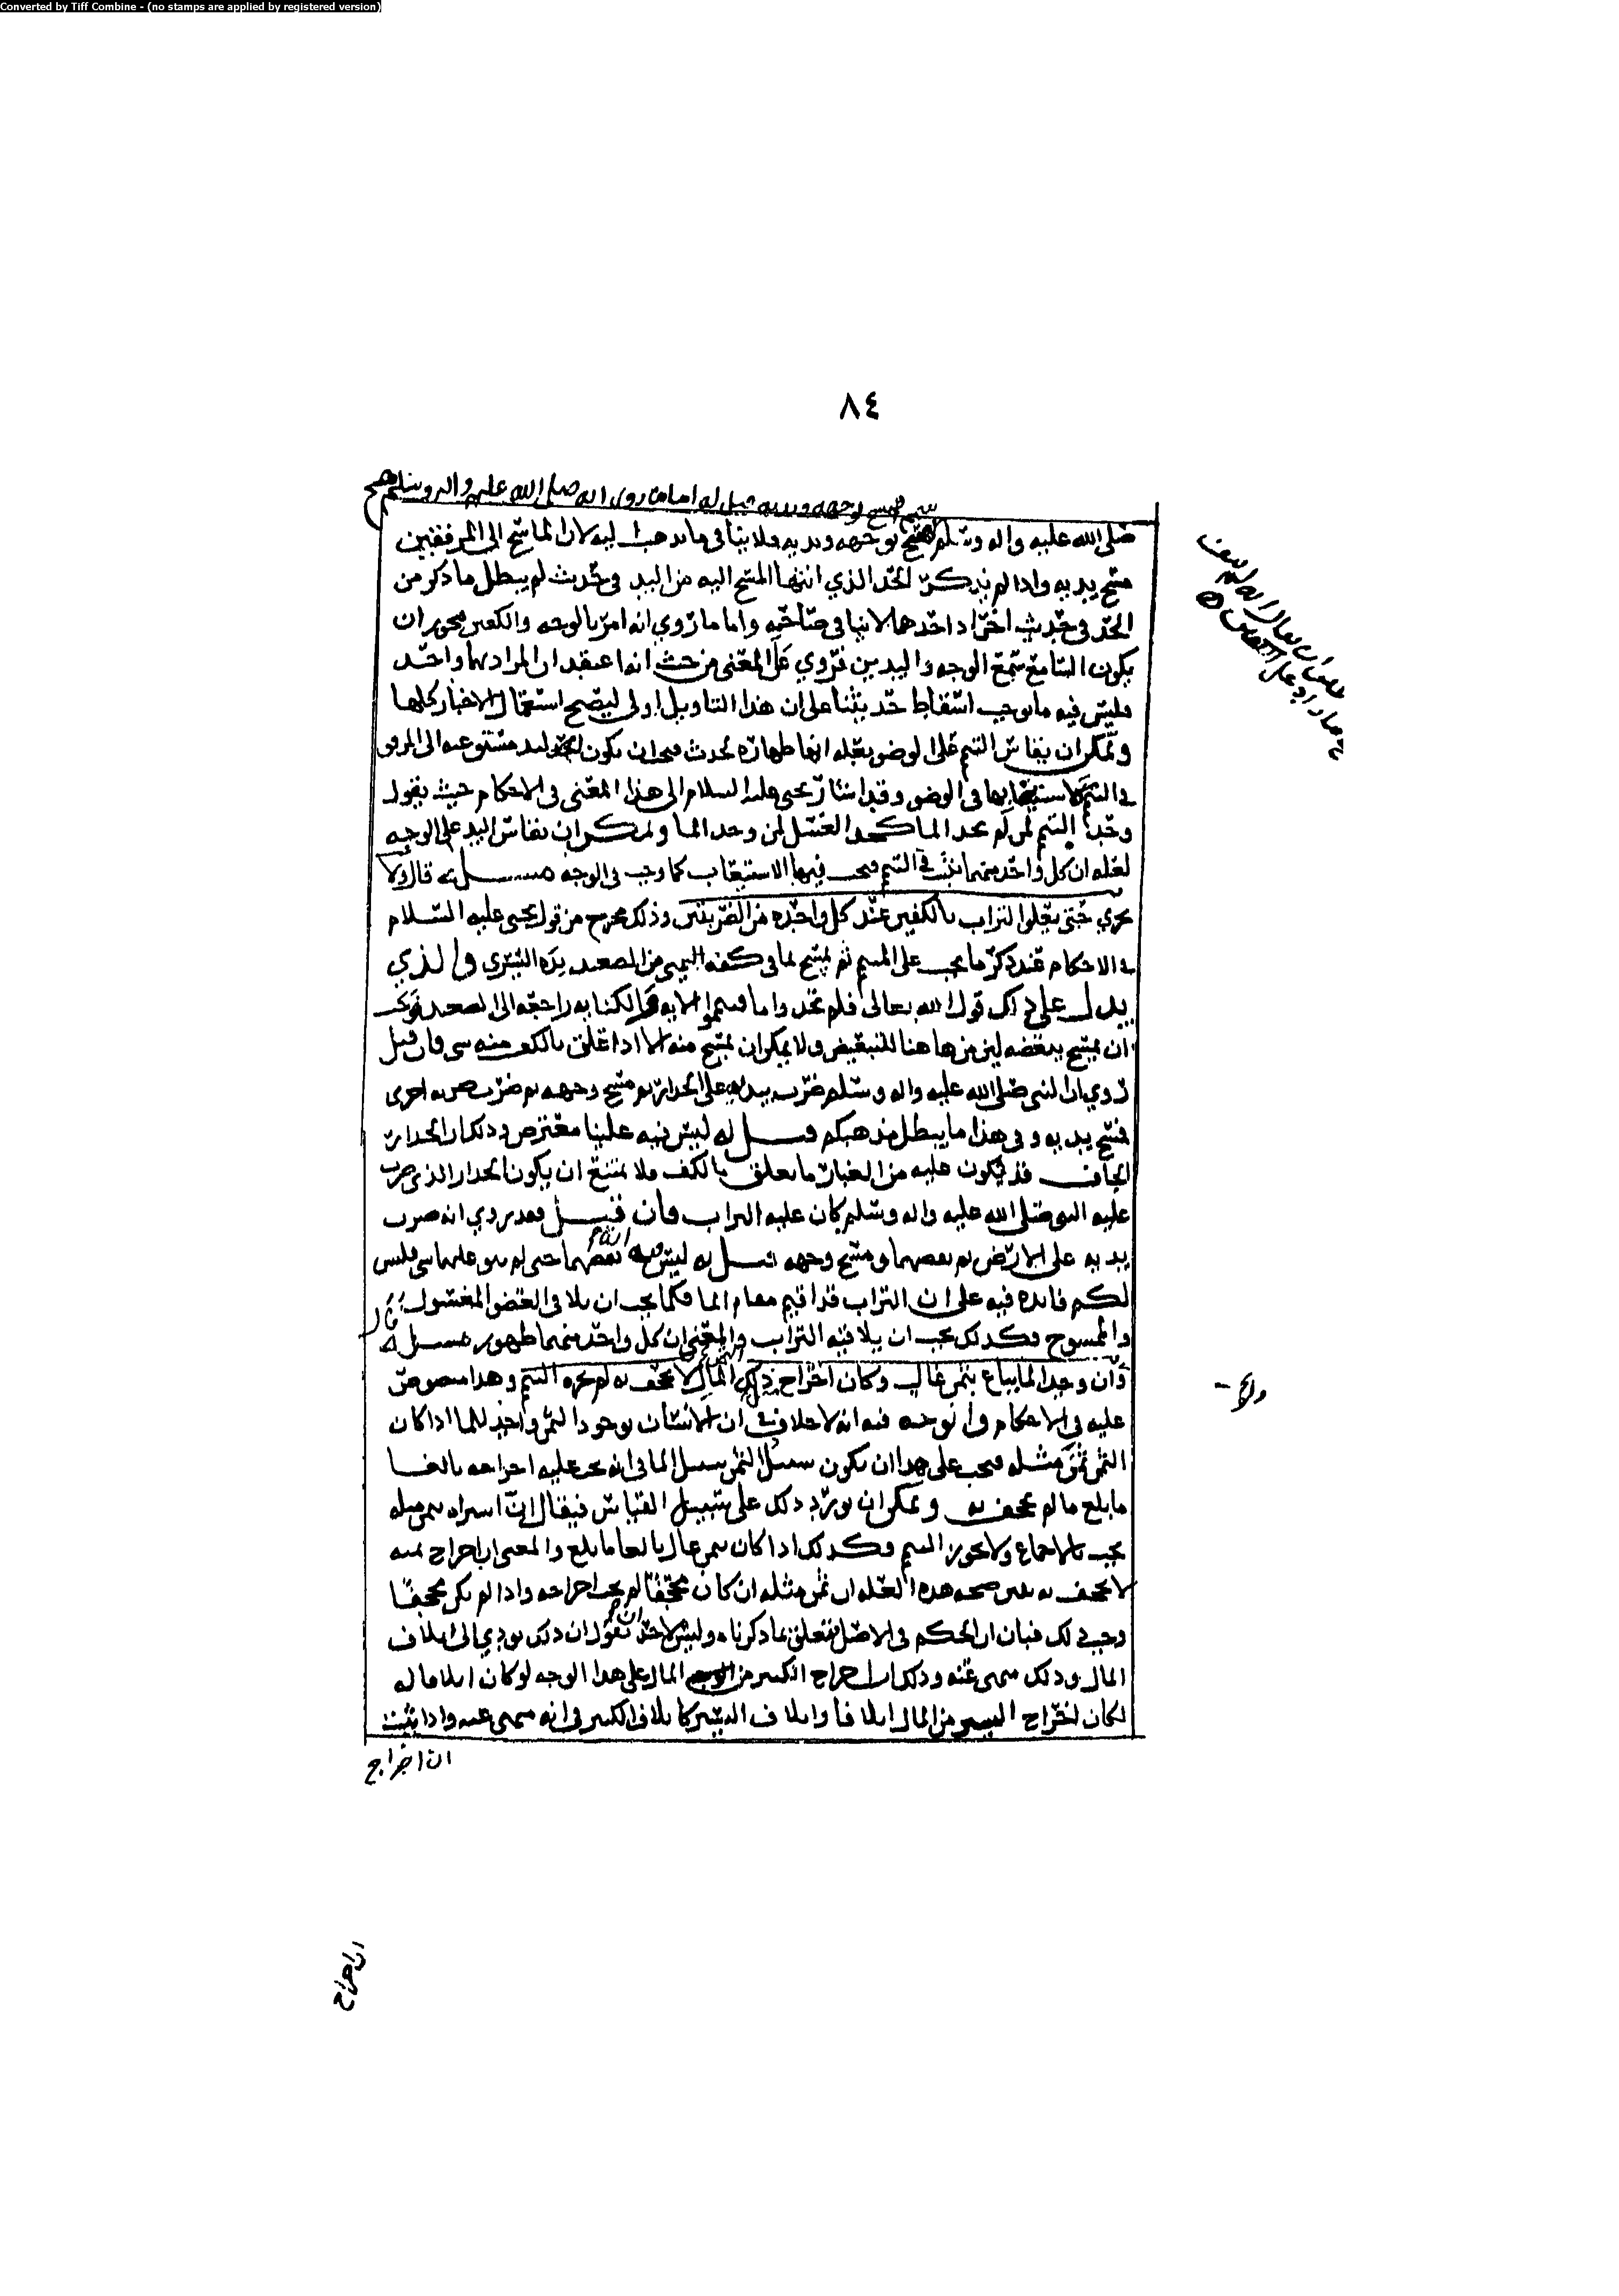 Converted by Tiff Combine - (no stamps are applied by registered version)
٨٤
فمسح بوجهه ويديه قيل له اما ما روى انه صلى الله عليه واله وسلم مسح
صلى الله عليه واله وسلم مسح بوجهه ويديه فلا ينافي ما نذهب اليه لان الماسح الى المرفقين
مسح يديه واذا لم يذكر الحد الذي انتهى المسح اليه من اليد في حديث لم يبطل ما ذكر من
الحد في حديث اخر اذ احدهما لا ينافي صاحبه واما ما روي انه امر بالوجه والكفين فيجوز ان
يكون السامع سمع الوجه واليدين فروي على المعنى من حيث انه اعتقد ان المراد بهما واحد
فليس فيه ما يوجب اسقاط حديثنا على ان هذا التاويل اولى ليصح استعمال الاخبار كلها
ويمكن ان يقاس التيمم على الوضو بعلة انها طهارة لحدث فيجب ان يكون اليد مستوعبه الى المرفق
في التيمم كاستيعابها في الوضو وقد اشار يحيى عليه السلام الى هذا المعنى في الاحكام حيث يقول
وحد التيمم لمن لم يجد الما كحد الغسل لمن وجد الما ويمكن ان يقاس اليد على الوجه
لعلة ان كل واحد منهما يثبت في التيمم فيجب فيها الاستيعاب كما وجب في الوجه مسئلة قال ولا
يجزي حتى يعلوا التراب بالكفين عند كل واحدة من الضربتين وذلك مخرج من قول يحيى عليه السلام
في الاحكام عند ذكر ما يجب على المتيمم ثم يمسح بما في كفه اليمنى من الصعيد يده اليسرى والذي
يدل على ذلك قول الله تعالى فلم تجدوا ما فتيمموا الايه والكنايه راجعه الى الصعيد فوجب
ان يمسح ببعضه لان من هاهنا للتبعيض ولا يمكن ان يمسح منه الا اذا علق بالكف منه شي فان قيل
روي ان النبي صلى الله عليه واله وسلم ضرب بيديه على الجدار ثم مسح وجهه ثم ضرب ضربه اخرى
فمسح يديه وفي هذا ما يبطل مذهبكم قيل له ليس فيه علينا معترض وذلك ان الجدار
الجاف قد يكون عليه من الغبار ما يعلق بالكف ولا يمتنع ان يكون الجدار الذي ضرب
عليه النبي صلى الله عليه واله وسلم كان عليه التراب فان قيل فقد روي انه ضرب
يديه على الارض ثم نفضهما ومسح وجهه قيل له ليس فيه انه نفضهما حتى لم يبق عليهما شي فليس
لكم فائده فيه على ان التراب قد اقيم مقام الما فكما يجب ان يلاقي العضو المغسول
والممسوح فكذلك يجب ان يلاقيه التراب والمعنى ان كل واحد منهما طهور مسئلة قال
وان وجد الما يباع بثمن غال وكان اخراج ذلك المال لا يجحف به لم يجزه التيمم وهذا منصوص
عليه في الاحكام والوجه فيه انه لا خلاف في ان الانسان بوجود الثمن واجد للما اذا كان
الثمن ثمن مثله فيجب على هذا ان يكون سبيل الثمن سبيل الما في انه يجب عليه اخراجه بالغا
ما بلغ ما لم يجحف به ويمكن ان يورد ذلك على سبيل القياس فيقال ان شراه بثمن مثله
يجب بالاجماع ولا يجوز التيمم وكذلك اذا كان بثمن غال بالغا ما بلغ والمعنى ان اخراج ثمنه
لا يجحف به يبين صحه هذه العله ان ثمن مثله ان كان مجحفا لم يجب اخراجه واذا لم يكن مجحفا
وجب ذلك فبان ان الحكم في الاصل يتعلق بما ذكرناه وليس لاحد ان يقول ان ذلك يودي الى اتلاف
المال وذلك منهي عنه وذلك ان اخراج الكثير من المال على هذا الوجه لو كان اتلافا له
لكان اخراج اليسير من المال اتلافا واتلاف اليسير كاتلاف الكثير في انه منهي عنه واذا ثبت
ان اخراج
ان اخراج